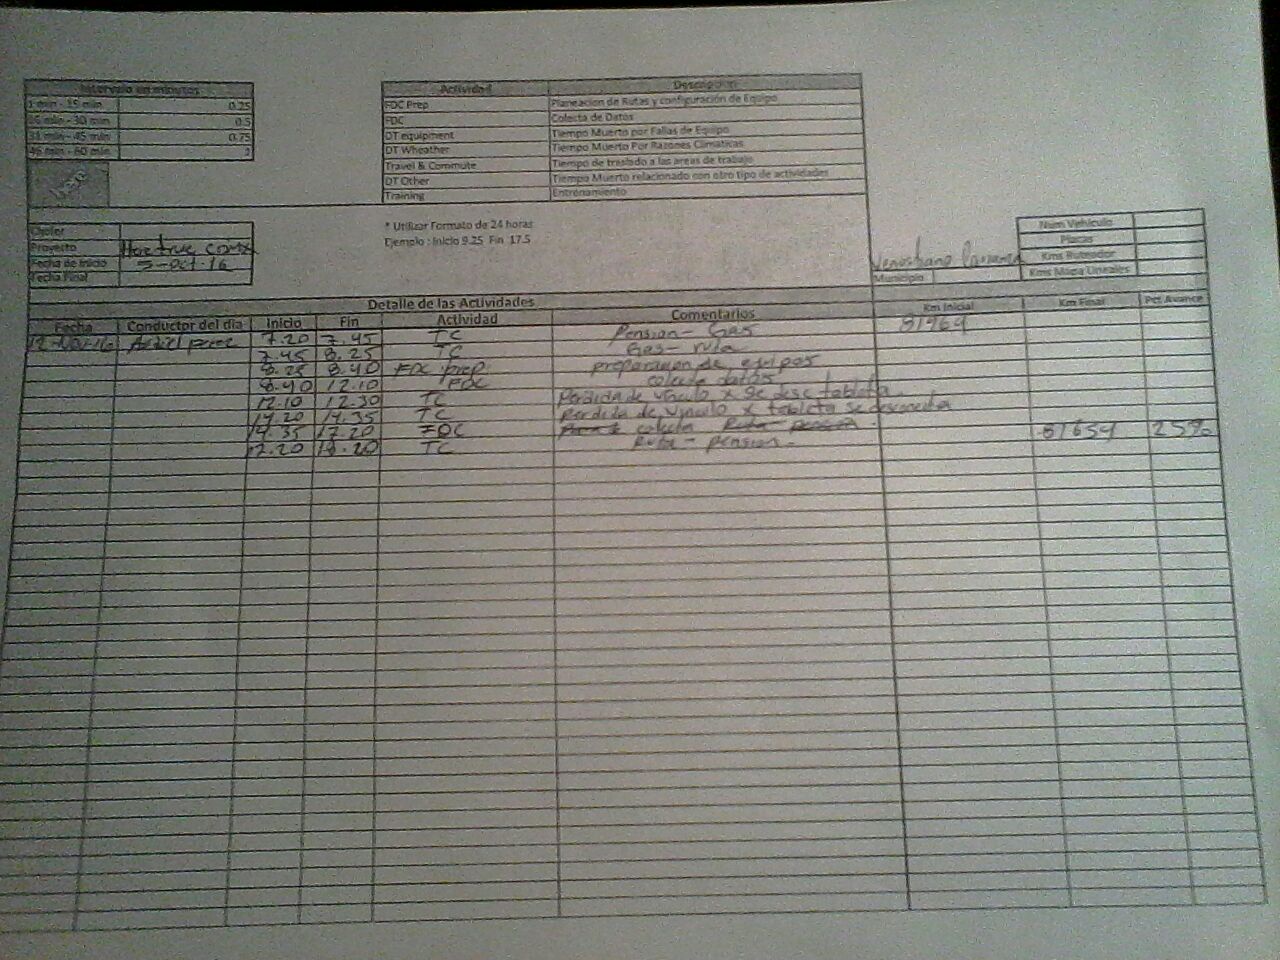 Intervalo en minutos
1 min - 15 min 0.25
16 min - 30 min 0.5
31 min - 45 min 0.75
46 min - 60 min 1
Actividad Descripcion
FDC Prep Planeacion de Rutas y configuración de Equipo
FDC Colecta de Datos
DT equipment Tiempo Muerto por Fallas de Equipo
DT Wheather Tiempo Muerto Por Razones Climaticas
Travel & Commute Tiempo de traslado a las areas de trabajo
DT Other Tiempo Muerto relacionado con otro tipo de actividades
Training Entrenamiento
here
Chofer
Proyecto Here true
Fecha de Inicio 5-oct-16
Fecha Final
* Utilizar Formato de 24 horas
Ejemplo : Inicio 9.25 Fin 17.5
Num Vehiculo
Placas
Kms Ruteador
Kms Mapa Lineales
Venustiano Carranza
Municipio
Detalle de las Actividades
Fecha Conductor del dia Inicio Fin Actividad Comentarios Km Inicial Km Final Pct Avance
12-Nov-16 perez 7.20 7.45 TC Pension - Gas
7.45 8.25 TC Gas - ruta
8.25 8.40 FDC prep. preparacion de equipos
8.40 12.10 FDC colecta datos
12.10 12.30 TC Perdida de vinculo x se desc tableta
14.20 14.35 TC Perdida de vinculo x tableta se desconecta
14.35 17.20 FDC colecta Ruta - pension 25%
17.20 18.20 TC Ruta - pension.